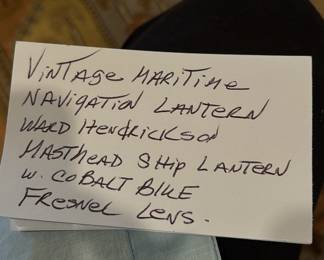 VINTAGE MARITIME
NAVIGATION LANTERN
WARD HENDRICKSON
MASTHEAD SHIP LANTERN
W. COBALT BLUE
FRESNEL LENS.